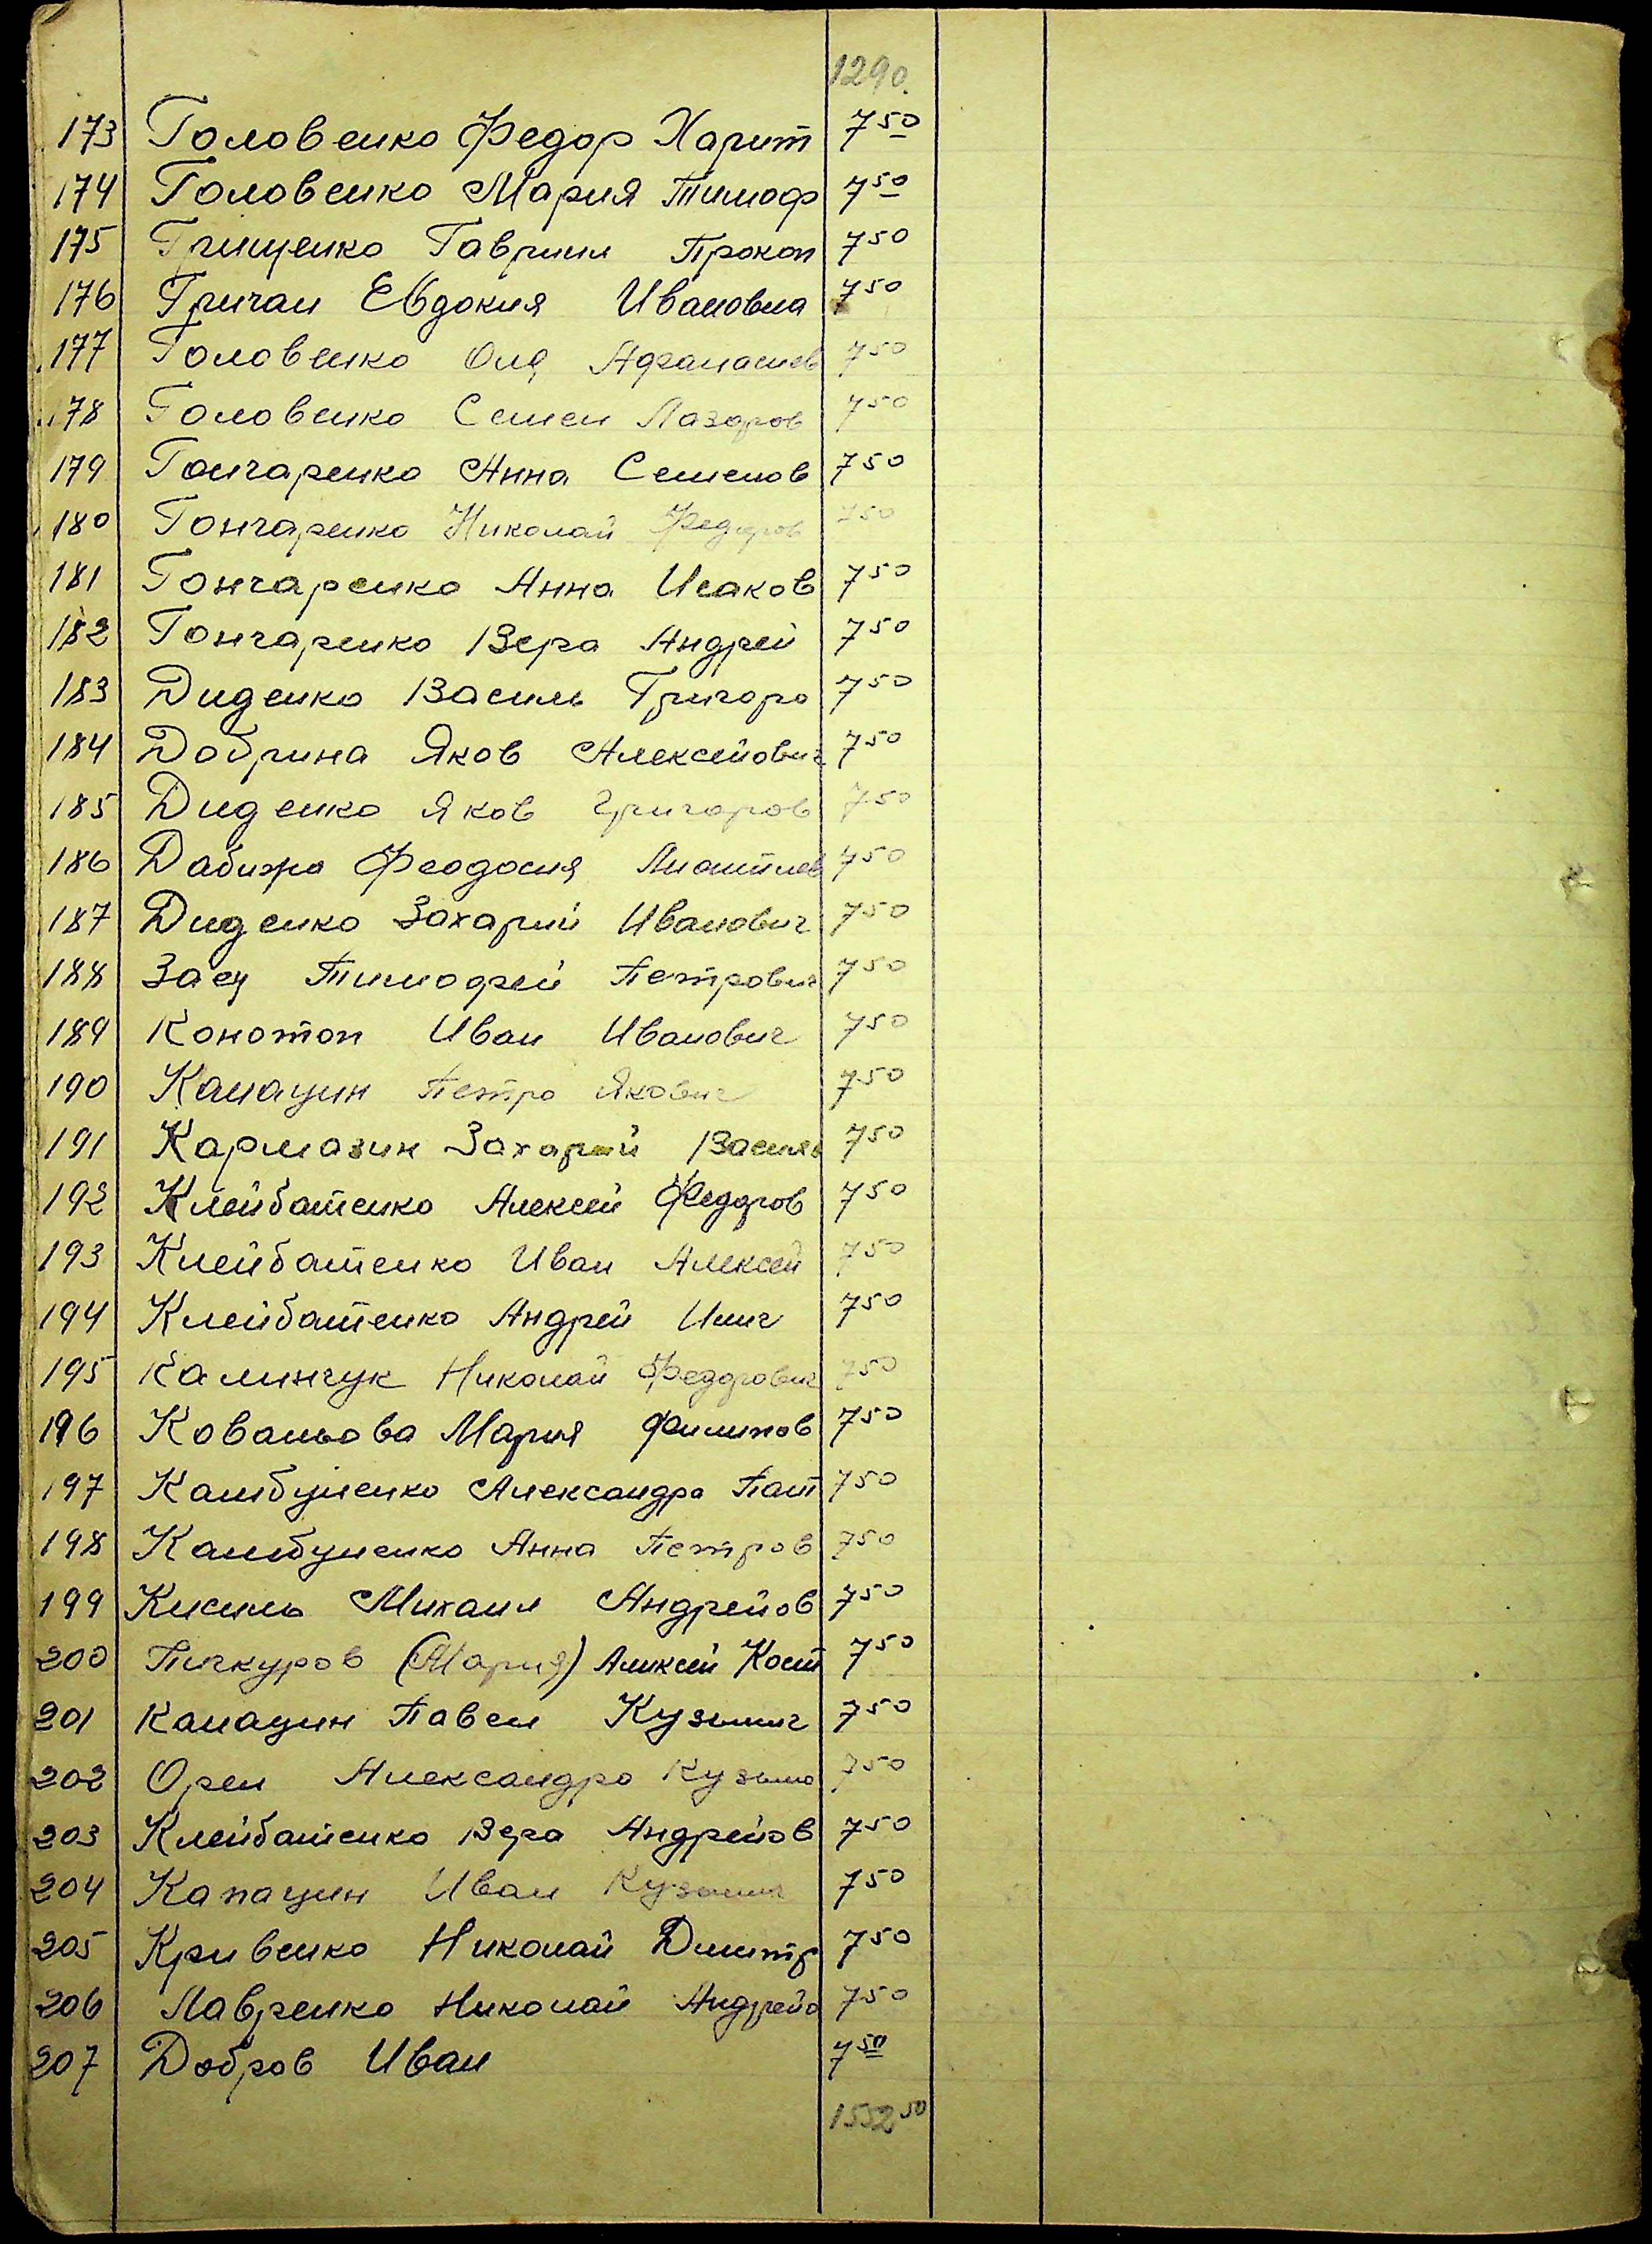 1290.
173 Головенко Федор Харит 7 50
174 Головенко Мария Тимоф 7 50
175 Грищенко Гаврил Прокоп 7 50
176 Гричан Евдокия Ивановна 7 50
177 Головенко Оля Афанасиев 7 50
178 Головенко Семен Лазаров 7 50
179 Гончаренко Анна Семенов 7 50
180 Гончаренко Николай Федоров 7 50
181 Гончаренко Анна Исаков 7 50
182 Гончаренко Вера Андрей 7 50
183 Диденко Василь Григоро 7 50
184 Добрина Яков Алексейович 7 50
185 Диденко Яков Григоров 7 50
186 Дабижа Феодосия 7 50
187 Диденко Захарий Иванович 7 50
188 Заец Тимофей Петрович 7 50
189 Конотоп Иван Иванович 7 50
190 Капацин Петро Якович 7 50
191 Кармазин Захарий Василь 7 50
192 Клейбатенко Алексей Федоров 7 50
193 Клейбатенко Иван Алексей 7 50
194 Клейбатенко Андрей Илич 7 50
195 Калинчук Николай Федорович 7 50
196 Ковальова Мария Филипов 7 50
197 Камбуленко Александра Пат 7 50
198 Камбуленко Анна Петров 7 50
199 Кисиль Михаил Андрейов 7 50
200 Пичкуров (Мария) Алексей Кост 7 50
201 Капацин Павел Кузьмич 7 50
202 Орел Александра Кузьмо 7 50
203 Клейбатенко Вера Андрейов 7 50
204 Капацин Иван Кузьмич 7 50
205 Кривенко Николай Дмитр 7 50
206 Лавренко Николай Андрейо 7 50
207 Добров Иван 7 50
1552 50